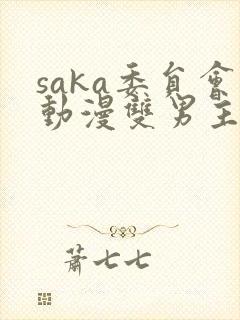 saka委員會
動漫雙男主
蕭七七